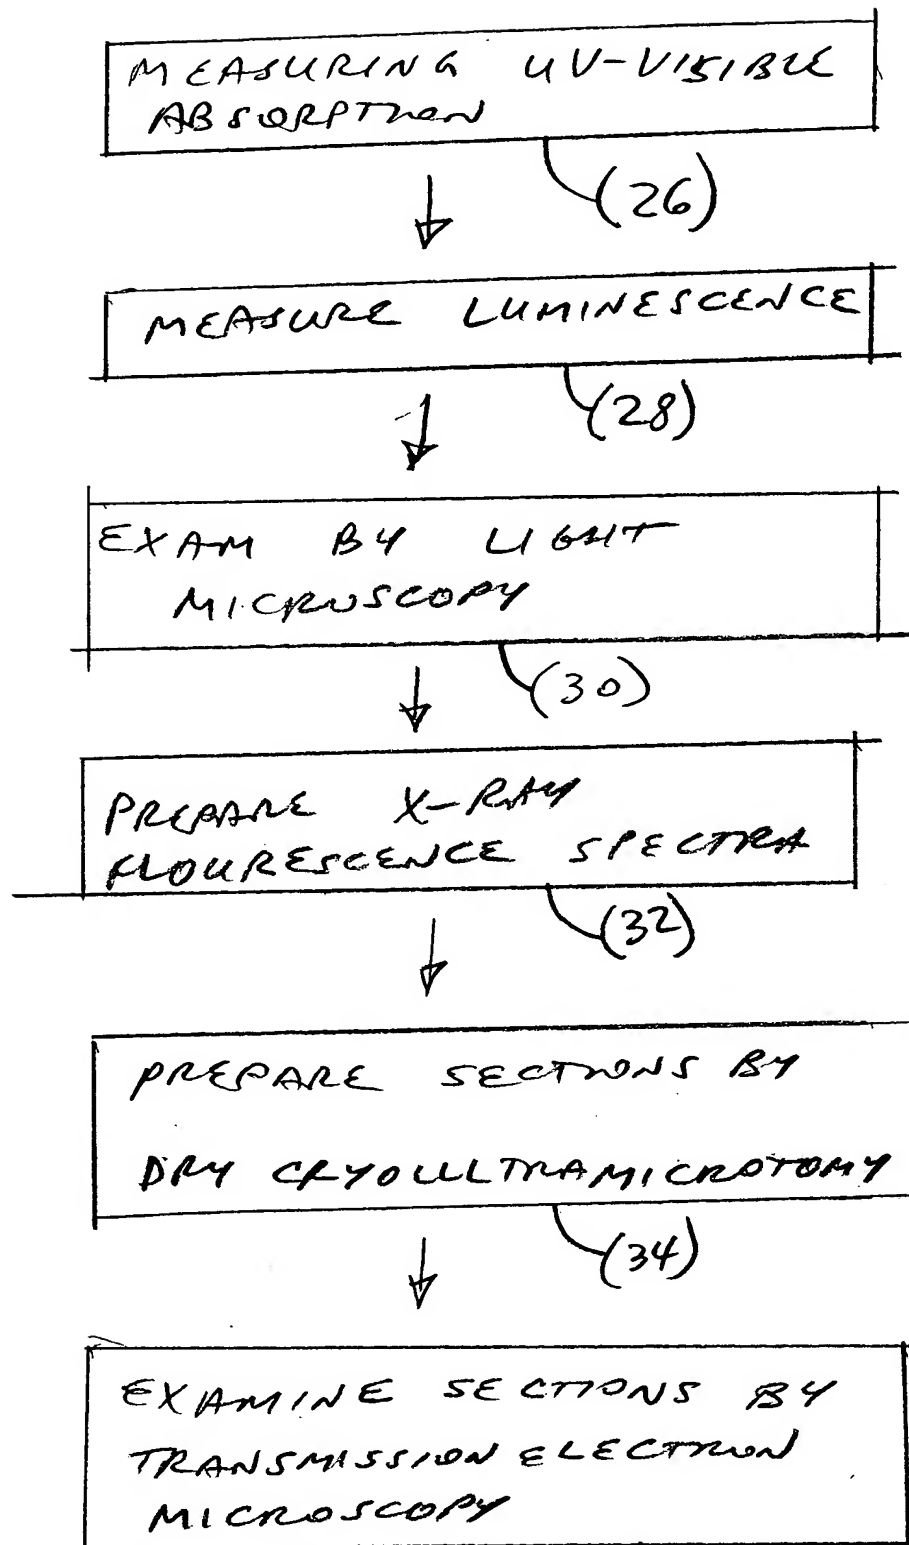 MEASURING UV-VISIBLE
ABSORPTION
(26)
MEASURE LUMINESCENCE
(28)
EXAM BY LIGHT
MICROSCOPY
(30)
PREPARE X-RAY
FLOURESCENCE SPECTRA
(32)
PREPARE SECTIONS BY
DRY CRYOULTRAMICROTOMY
(34)
EXAMINE SECTIONS BY
TRANSMISSION ELECTRON
MICROSCOPY